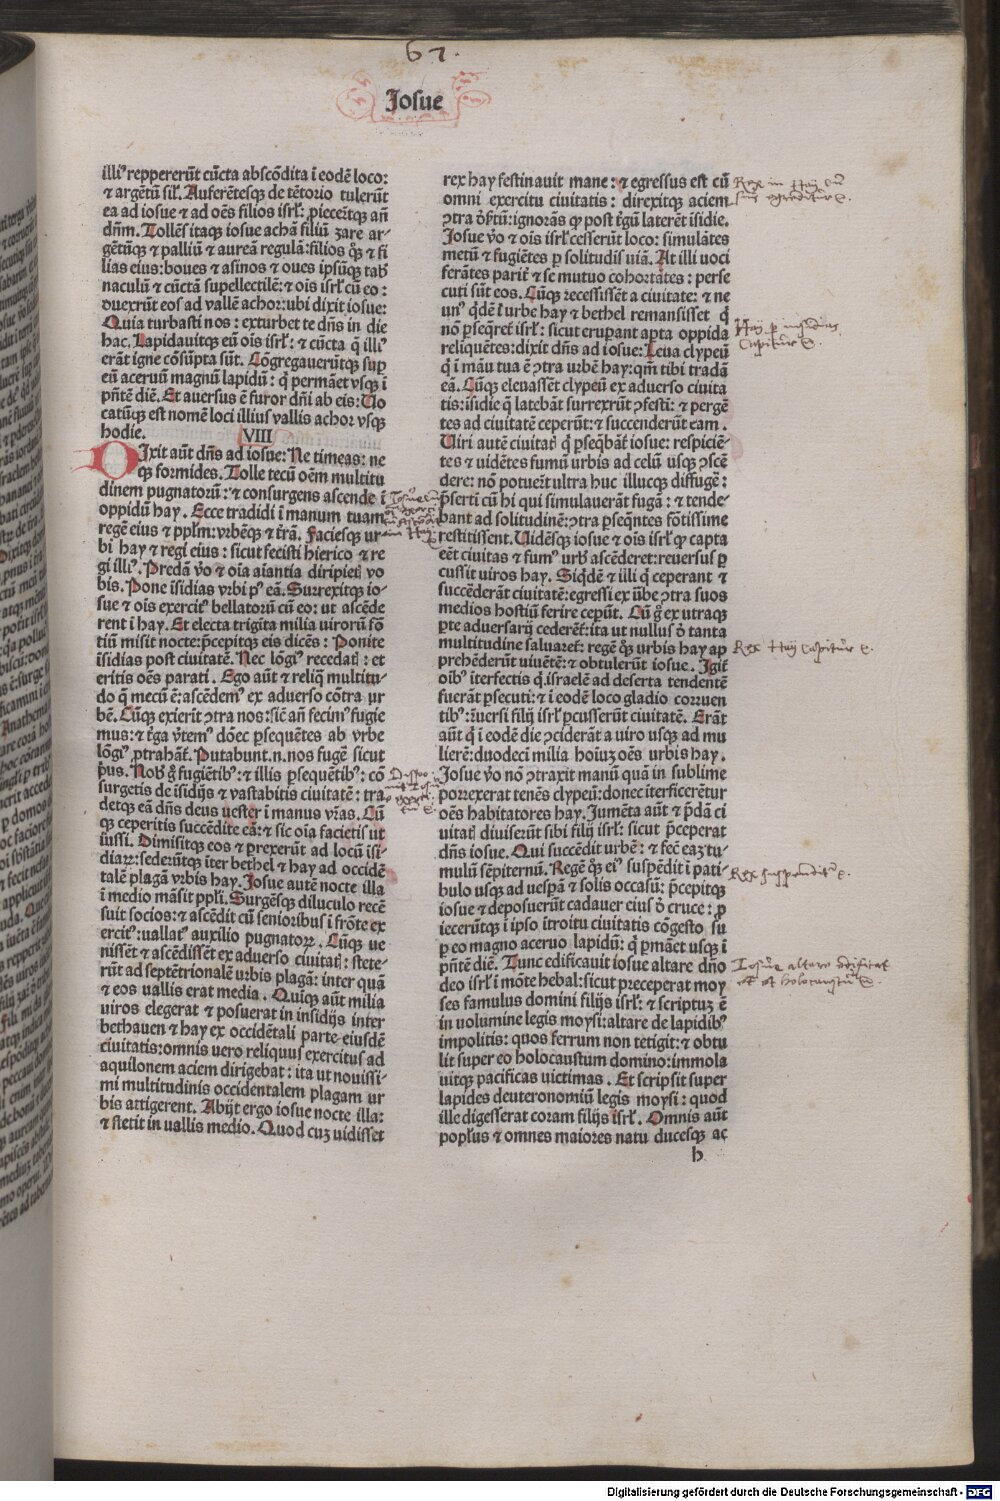 67.
Josue
illiꝰ reppererūt cūcta abscōdita ī eodē loco:
⁊ argētū sił. Auferētesqꝫ de tētorio tulerūt
ea ad iosue ⁊ ad oēs filios isrł: ꝓiecerūtqꝫ añ
dn̄m. Tollēs itaqꝫ iosue achā filiū zare ar-
gētūqꝫ ⁊ palliū ⁊ aureā regulā: filios qꝫ ⁊ fi
lias eius: boues ⁊ asinos ⁊ oues ipsūqꝫ tab̉
naculū ⁊ cūctā supellectilē: ⁊ oīs isrł cū eo:
duxerūt eos ad vallē achor: ubi dixit iosue:
Quia turbasti nos: exturbet te dn̄s in die
hac. Lapidauitqꝫ eū oīs isrł: ⁊ cūcta q̄ illiꝰ
erāt igne cōsūpta sūt. Cōgregauerūtqꝫ suꝑ
eū aceruū magnū lapidū: q̄ permāet vsqꝫ ī
p̄ntē diē. Et auersus ē furor dn̄i ab eis: Uo
catūqꝫ est nomē loci illius vallis achor vsqꝫ
hodie. VIII
DIxit aūt dn̄s ad iosue: Ne timeas: ne
qꝫ formides. Tolle tecū oēm multitu
dinem pugnatorū: ⁊ consurgens ascende ī
oppidū hay. Ecce tradidi ī manum tuam
regē eius ⁊ ppl̄m: vrbēqꝫ ⁊ t̄rā. Faciesqꝫ ur
bi hay ⁊ regi eius: sicut fecisti hierico ⁊ re
gi illiꝰ. Predā v̄o ⁊ oīa aīantia diripietꝭ vo
bis. Pone īsidias vrbi pꝰ eā. Surrexitqꝫ io-
sue ⁊ oīs exercitꝰ bellatorū cū eo: ut ascēde
rent ī hay. Et electa trigīta milia virorū fō
tiū misit nocte: p̄cepitqꝫ eis dicēs: Ponite
īsidias post ciuitatē. Nec lōgiꝰ recedatꝭ: et
eritis oēs parati. Ego aūt ⁊ reliq̄ multitu-
do q̄ mecū ē: ascēdemꝰ ex aduerso cōtra ur
bē. Cūqꝫ exierīt ꝯtra nos: sic̄ añ fecimꝰ fugie
mus: ⁊ t̄ga v̄temꝰ dōec ꝑsequētes ab vrbe
lōgiꝰ ꝓtrahāt. Putabunt .n. nos fugē sicut
p̄us. Nob̉ g̊ fugiētibꝰ: ⁊ illis ꝑsequētibꝰ: cō
surgetis de īsidijs ⁊ vastabitis ciuitatē: tra
detqꝫ eā dn̄s deus uester ī manus v̄ras. Cū
qꝫ ceperitis succēdite eā: ⁊ sic oīa facietis ut
iussi. Dimisitqꝫ eos ⁊ ꝑrexerūt ad locū īsi-
diaꝝ: sederūtqꝫ īter bethel ⁊ hay ad occidē
talē plagā vrbis hay. Josue autē nocte illa
ī medio māsit ppl̄i. Surgēsqꝫ diluculo recē
suit socios: ⁊ ascēdit cū senioribus ī frōte ex
ercitꝰ: uallatꝰ auxilio pugnatoꝝ. Cūqꝫ ue
nissēt ⁊ ascēdissēt ex aduerso ciuitatꝭ: stete-
rūt ad septētrionalē urbis plagā: inter quā
⁊ eos vallis erat media. Quiqꝫ aūt milia
viros elegerat ⁊ posuerat in insidijs inter
bethauen ⁊ hay ex occidētali parte eiusdē
ciuitatis: omnis uero reliquus exercitus ad
aquilonem aciem dirigebat: ita ut nouissi-
mi multitudinis occidentalem plagam ur
bis attigerent. Abijt ergo iosue nocte illa:
⁊ stetit in uallis medio. Quod cuꝫ uidisset
rex hay festinauit mane: ⁊ egressus est cū
omni exercitu ciuitatis: direxitqꝫ aciem
ꝯtra d̓s̄tū: ignorās ꝙ post t̄gū laterēt īsidie.
Josue v̄o ⁊ oīs isrł cesserūt loco: simulātes
metū ⁊ fugiētes ꝑ solitudīs uiā. At illi uoci
ferātes parit̄ ⁊ se mutuo cohortātes: perse
cuti sūt eos. Cūqꝫ recessissēt a ciuitate: ⁊ ne
unꝰ q̇dē ī urbe hay ⁊ bethel remansisset q̄
nō ꝑseq̄ret̄ isrł: sicut eruperant aꝑta oppida
reliquētes: dixit dn̄s ad iosue: Leua clypeū
q̄ ī māu tua ē ꝯtra urbē hay: qm̄ tibi tradā
eā. Cūqꝫ eleuassēt clypeū ex aduerso ciuita
tis: īsidie q̄ latebāt surrexrūt ꝯfestī: ⁊ pergē
tes ad ciuitatē ceperūt: ⁊ succenderūt eam.
Uiri autē ciuitatꝭ q̄ ꝑseq̄bāt̄ iosue: respiciē
tes ⁊ uidētes fumū urbis ad celū usqꝫ ꝯscē
dere: nō potuerūt ultra huc illucqꝫ diffugē:
p̄serti cū hi qui simulauerāt fugā: ⁊ tende-
bant ad solitudinē: ꝯtra ꝑseq̄ntes fōtissime
restitissent. Uidēsqꝫ iosue ⁊ oīs isrł ꝙ capta
eēt ciuitas ⁊ fumꝰ urbꝭ ascēderet: reuersus ꝑ
cussit uiros hay. Siq̇dē ⁊ illi q̄ ceperant ⁊
succēderāt ciuitatē: egressi ex ūbe ꝯtra suos
medios hostiū ferire ceperūt. Cū g̊ ex utraqꝫ
ꝑte aduersarij cederēt̄: ita ut nullus d̓ tanta
multitudine saluaret̄: regē qꝫ urbis hay ap
prehēderūt uiuētē: ⁊ obtulerūt iosue. Igit̄
oībꝰ iterfectis q̄ israelē ad deserta tendentē
fuerāt ꝑsecuti: ⁊ ī eodē loco gladio corruen
tibꝰ: r̄uersi filij isrł ꝑcusserūt ciuitatē. Erāt
aūt q̄ ī eodē die ꝯciderāt a uiro usqꝫ ad mu
lierē: duodecī milia hoīuꝫ oēs urbis hay.
Josue v̄o nō ꝯtraxit manū quā in sublime
porrexerat tenēs clypeū: donec īterficerētur
oēs habitatores hay. Jumēta aūt ⁊ p̄dā ci
uitatꝭ diuiserūt sibi filij isrł: sicut p̄ceperat
dn̄s iosue. Qui succēdit urbē: ⁊ fec̄ eaꝫ tu-
mulū sēpiternū. Regē qꝫ eiꝰ suspēdit ī pati
bulo usqꝫ ad uesꝑā ⁊ solis occasū: p̄cepitqꝫ
iosue ⁊ deposuerūt cadauer eius d̓ cruce: ꝓ
iecerūtqꝫ ī ipso ītroitu ciuitatis cōgesto su
ꝑ eo magno aceruo lapidū: q̄ ꝑmāet usqꝫ ī
p̄ntē diē. Tunc edificauit iosue altare dn̄o
deo isrł ī mōte hebal: sicut preceperat moy
ses famulus domini filijs isrł: ⁊ scriptuꝫ ē
in uolumine legis moysi: altare de lapidibꝰ
impolitis: quos ferrum non tetigit: ⁊ obtu
lit super eo holocaustum domino: immola
uitqꝫ pacificas uictimas. Et scripsit super
lapides deuteronomiū legis moysi: quod
ille digesserat coram filijs isrł. Omnis aūt
popl̄us ⁊ omnes maiores natu ducesqꝫ ac
h
Rex Hay capitur
Rex suspenditur
Josue altare edificat
Digitalisierung gefördert durch die Deutsche Forschungsgemeinschaft - DFG